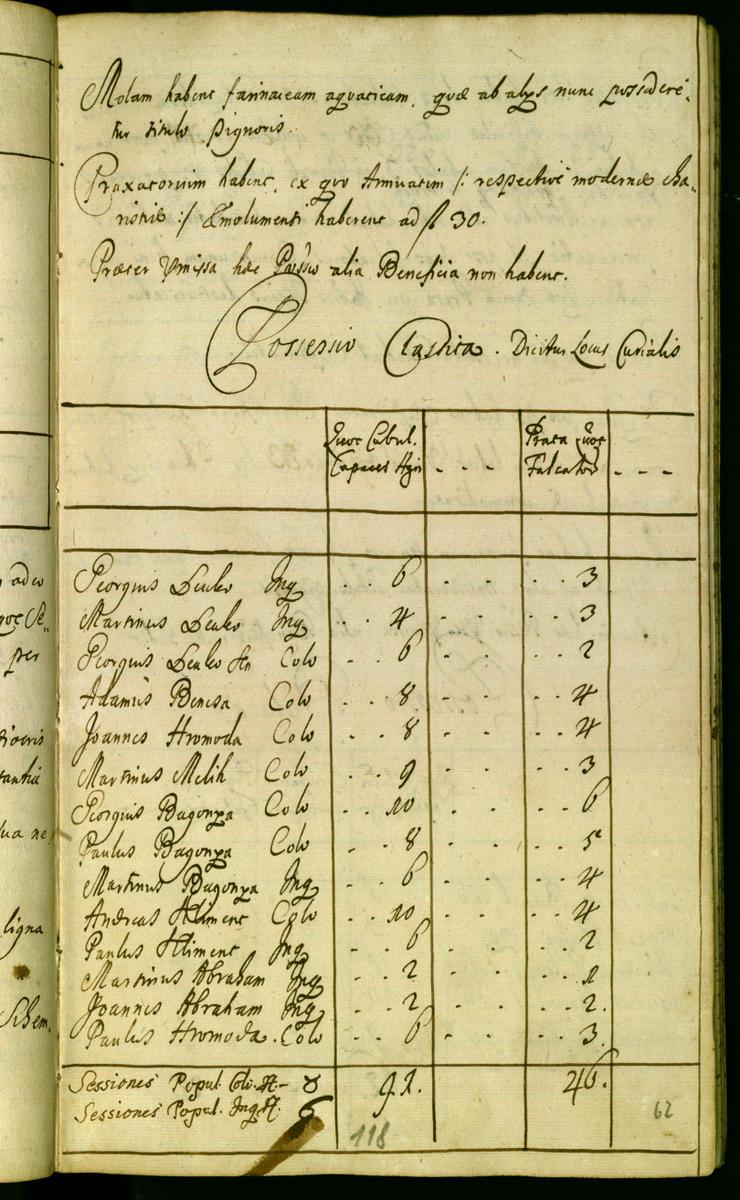 Molam habent farinaceam aquaticam, quæ ab alys nunc possidere-
tur titulo Pignoris.
Praxatorium habent, ex quo Annuatim /: respective modernæ cha-
ristiæ :/ Emolumenti haberent ad fl 30.
Præter Præmissa hæc Possessio alia Beneficia non habent.
Possessio Clastita. Dicitur Locus Curialis
Quot Cubul. Capaces Agri - - - Prata quot Falcator - - -
Georgius Lenko Inq . . 6 . . . . 3
Martinus Lenko Inq . . 4 . . . . 3
Georgius Lenko Sen Colo . . 6 . . . . 2
Adamus Benesa Colo . . 8 . . . . 4
Joannes Hromoda Colo . . 8 . . . . 4
Martinus Melih Colo . . 9 . . . . 3
Georgius Bagonya Colo . . 10 . . . . 6
Paulus Bagonya Colo . . 8 . . . . 5
Martinus Bagonya Inq . . 6 . . . . 4
Andreas Kliment Colo . . 10 . . . . 4
Paulus Kliment Inq . . 6 . . . . 2
Martinus Abraham Inq . . 2 . . . . 1
Joannes Abraham Inq . . 2 . . . . 2.
Paulus Hromoda. Colo . . 6 . . . . 3.
Sessiones Popul. Colo. 8 91. 46.
Sessiones Popul. Inq. 6
118
62